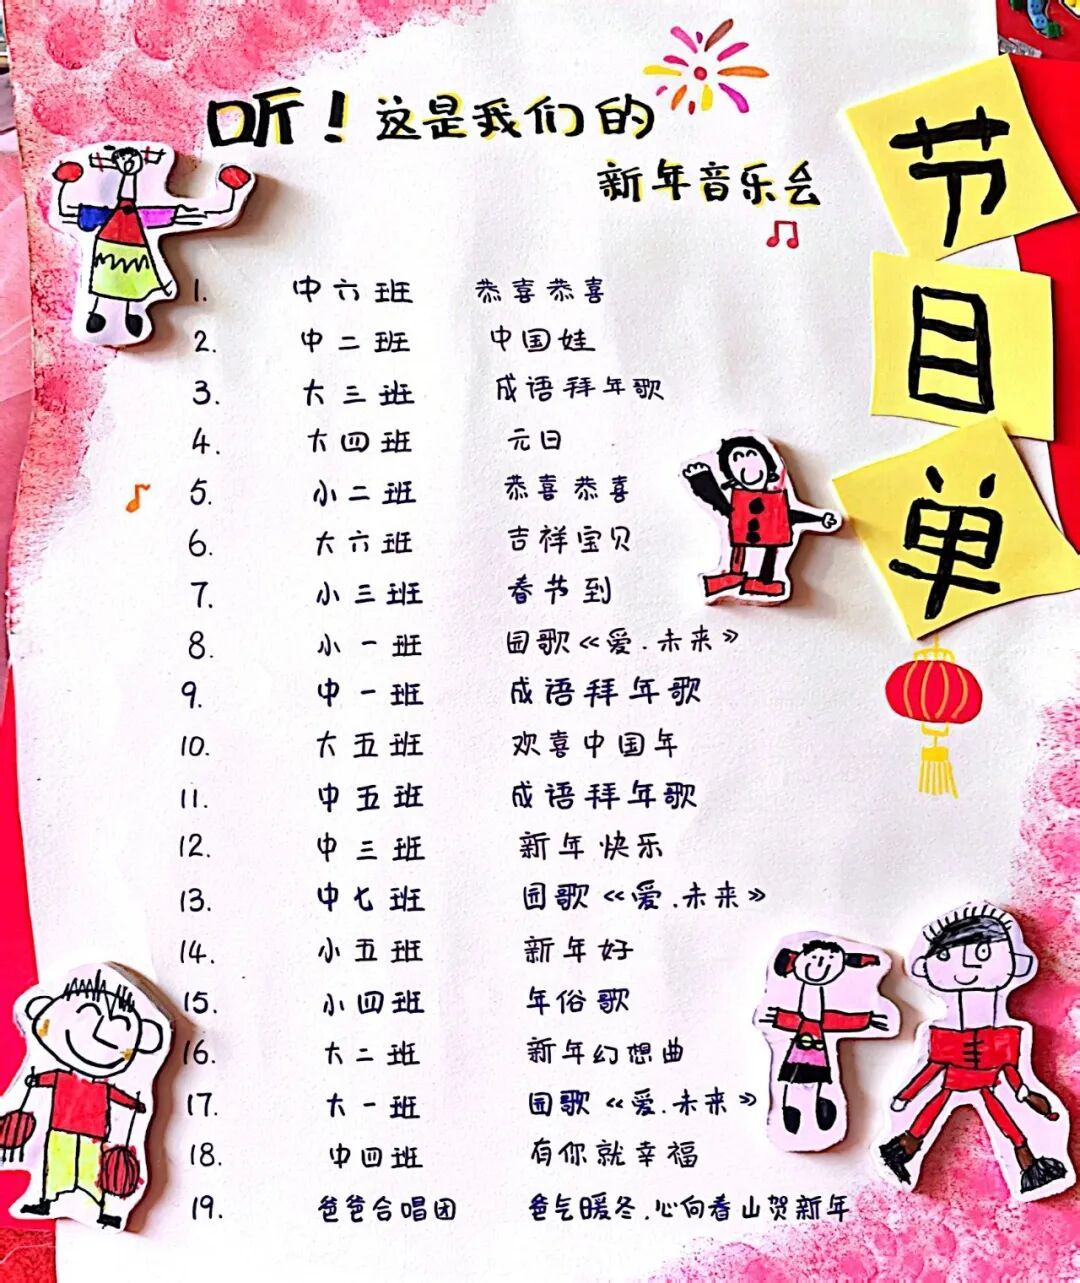 听！这是我们的
新年音乐会
节目单
1. 中六班 恭喜恭喜
2. 中二班 中国娃
3. 大三班 成语拜年歌
4. 大四班 元日
5. 小二班 恭喜恭喜
6. 大六班 吉祥宝贝
7. 小三班 春节到
8. 小一班 园歌《爱.未来》
9. 中一班 成语拜年歌
10. 大五班 欢喜中国年
11. 中五班 成语拜年歌
12. 中三班 新年快乐
13. 中七班 园歌《爱.未来》
14. 小五班 新年好
15. 小四班 年俗歌
16. 大二班 新年幻想曲
17. 大一班 园歌《爱.未来》
18. 中四班 有你就幸福
19. 爸爸合唱团 爸气暖冬.心向春山贺新年